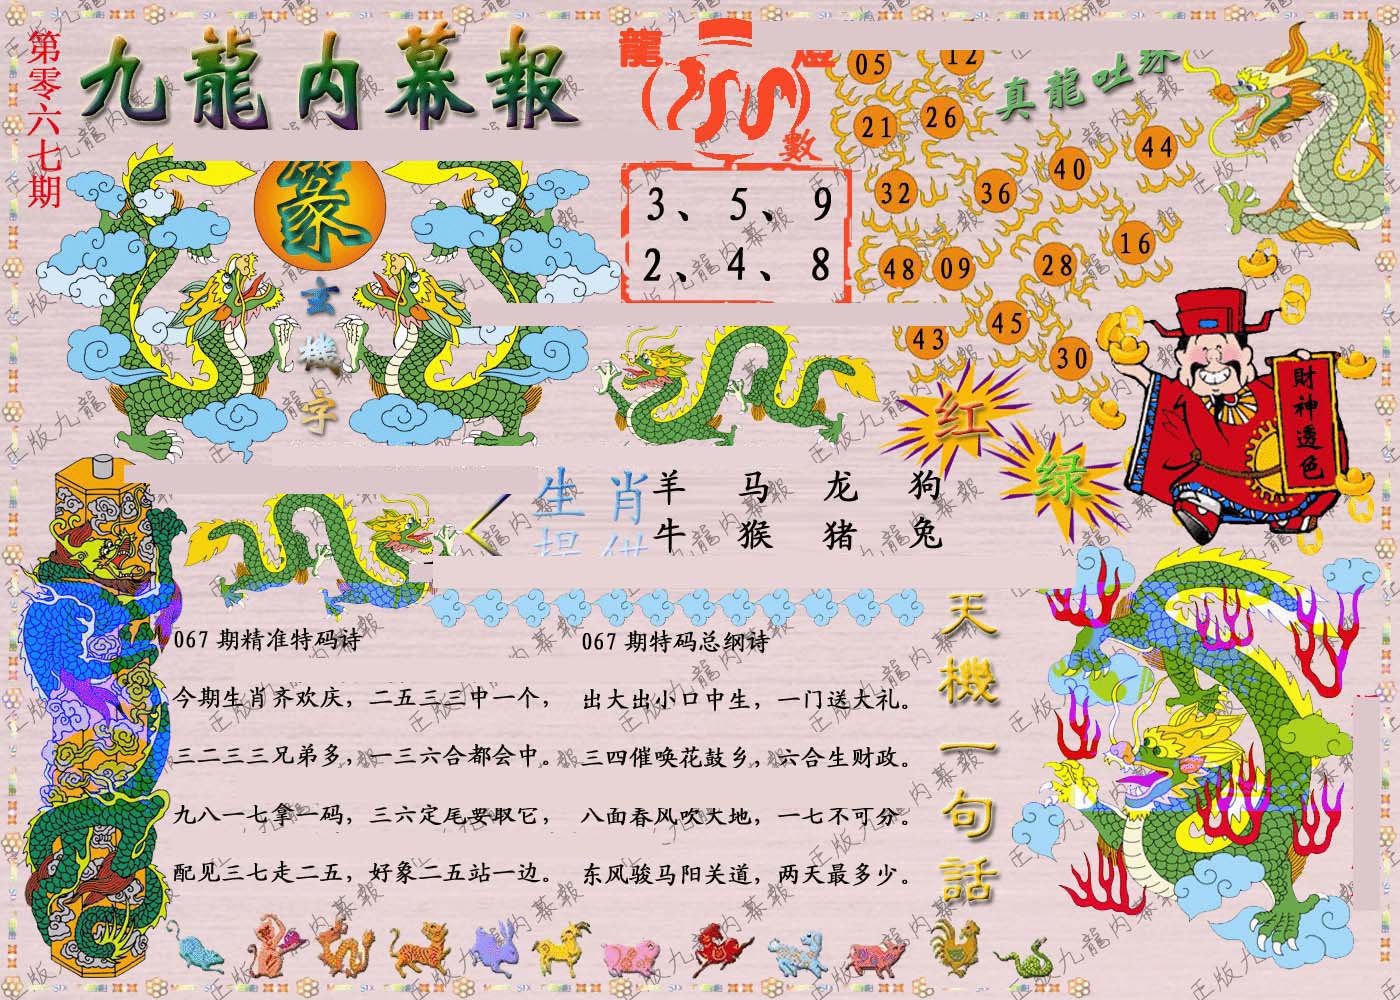 第零六七期
九龍內幕報
龍
數
3、5、9
2、4、8
真龍吐珠
05 12
21 26
32 36 40 44
48 09 28 16
43 45 30
篆
玄機字
財神透色
红
绿
生肖 羊 马 龙 狗
提供 牛 猴 猪 兔
067期精准特码诗
今期生肖齐欢庆，二五三三中一个，
三二三三兄弟多，一三六合都会中。
九八一七拿一码，三六定尾要取它，
配见三七走二五，好象二五站一边。
067期特码总纲诗
出大出小口中生，一门送大礼。
三四催唤花鼓乡，六合生财政。
八面春风吹大地，一七不可分。
东风骏马阳关道，两天最多少。
天機一句話
正版九龍內幕報